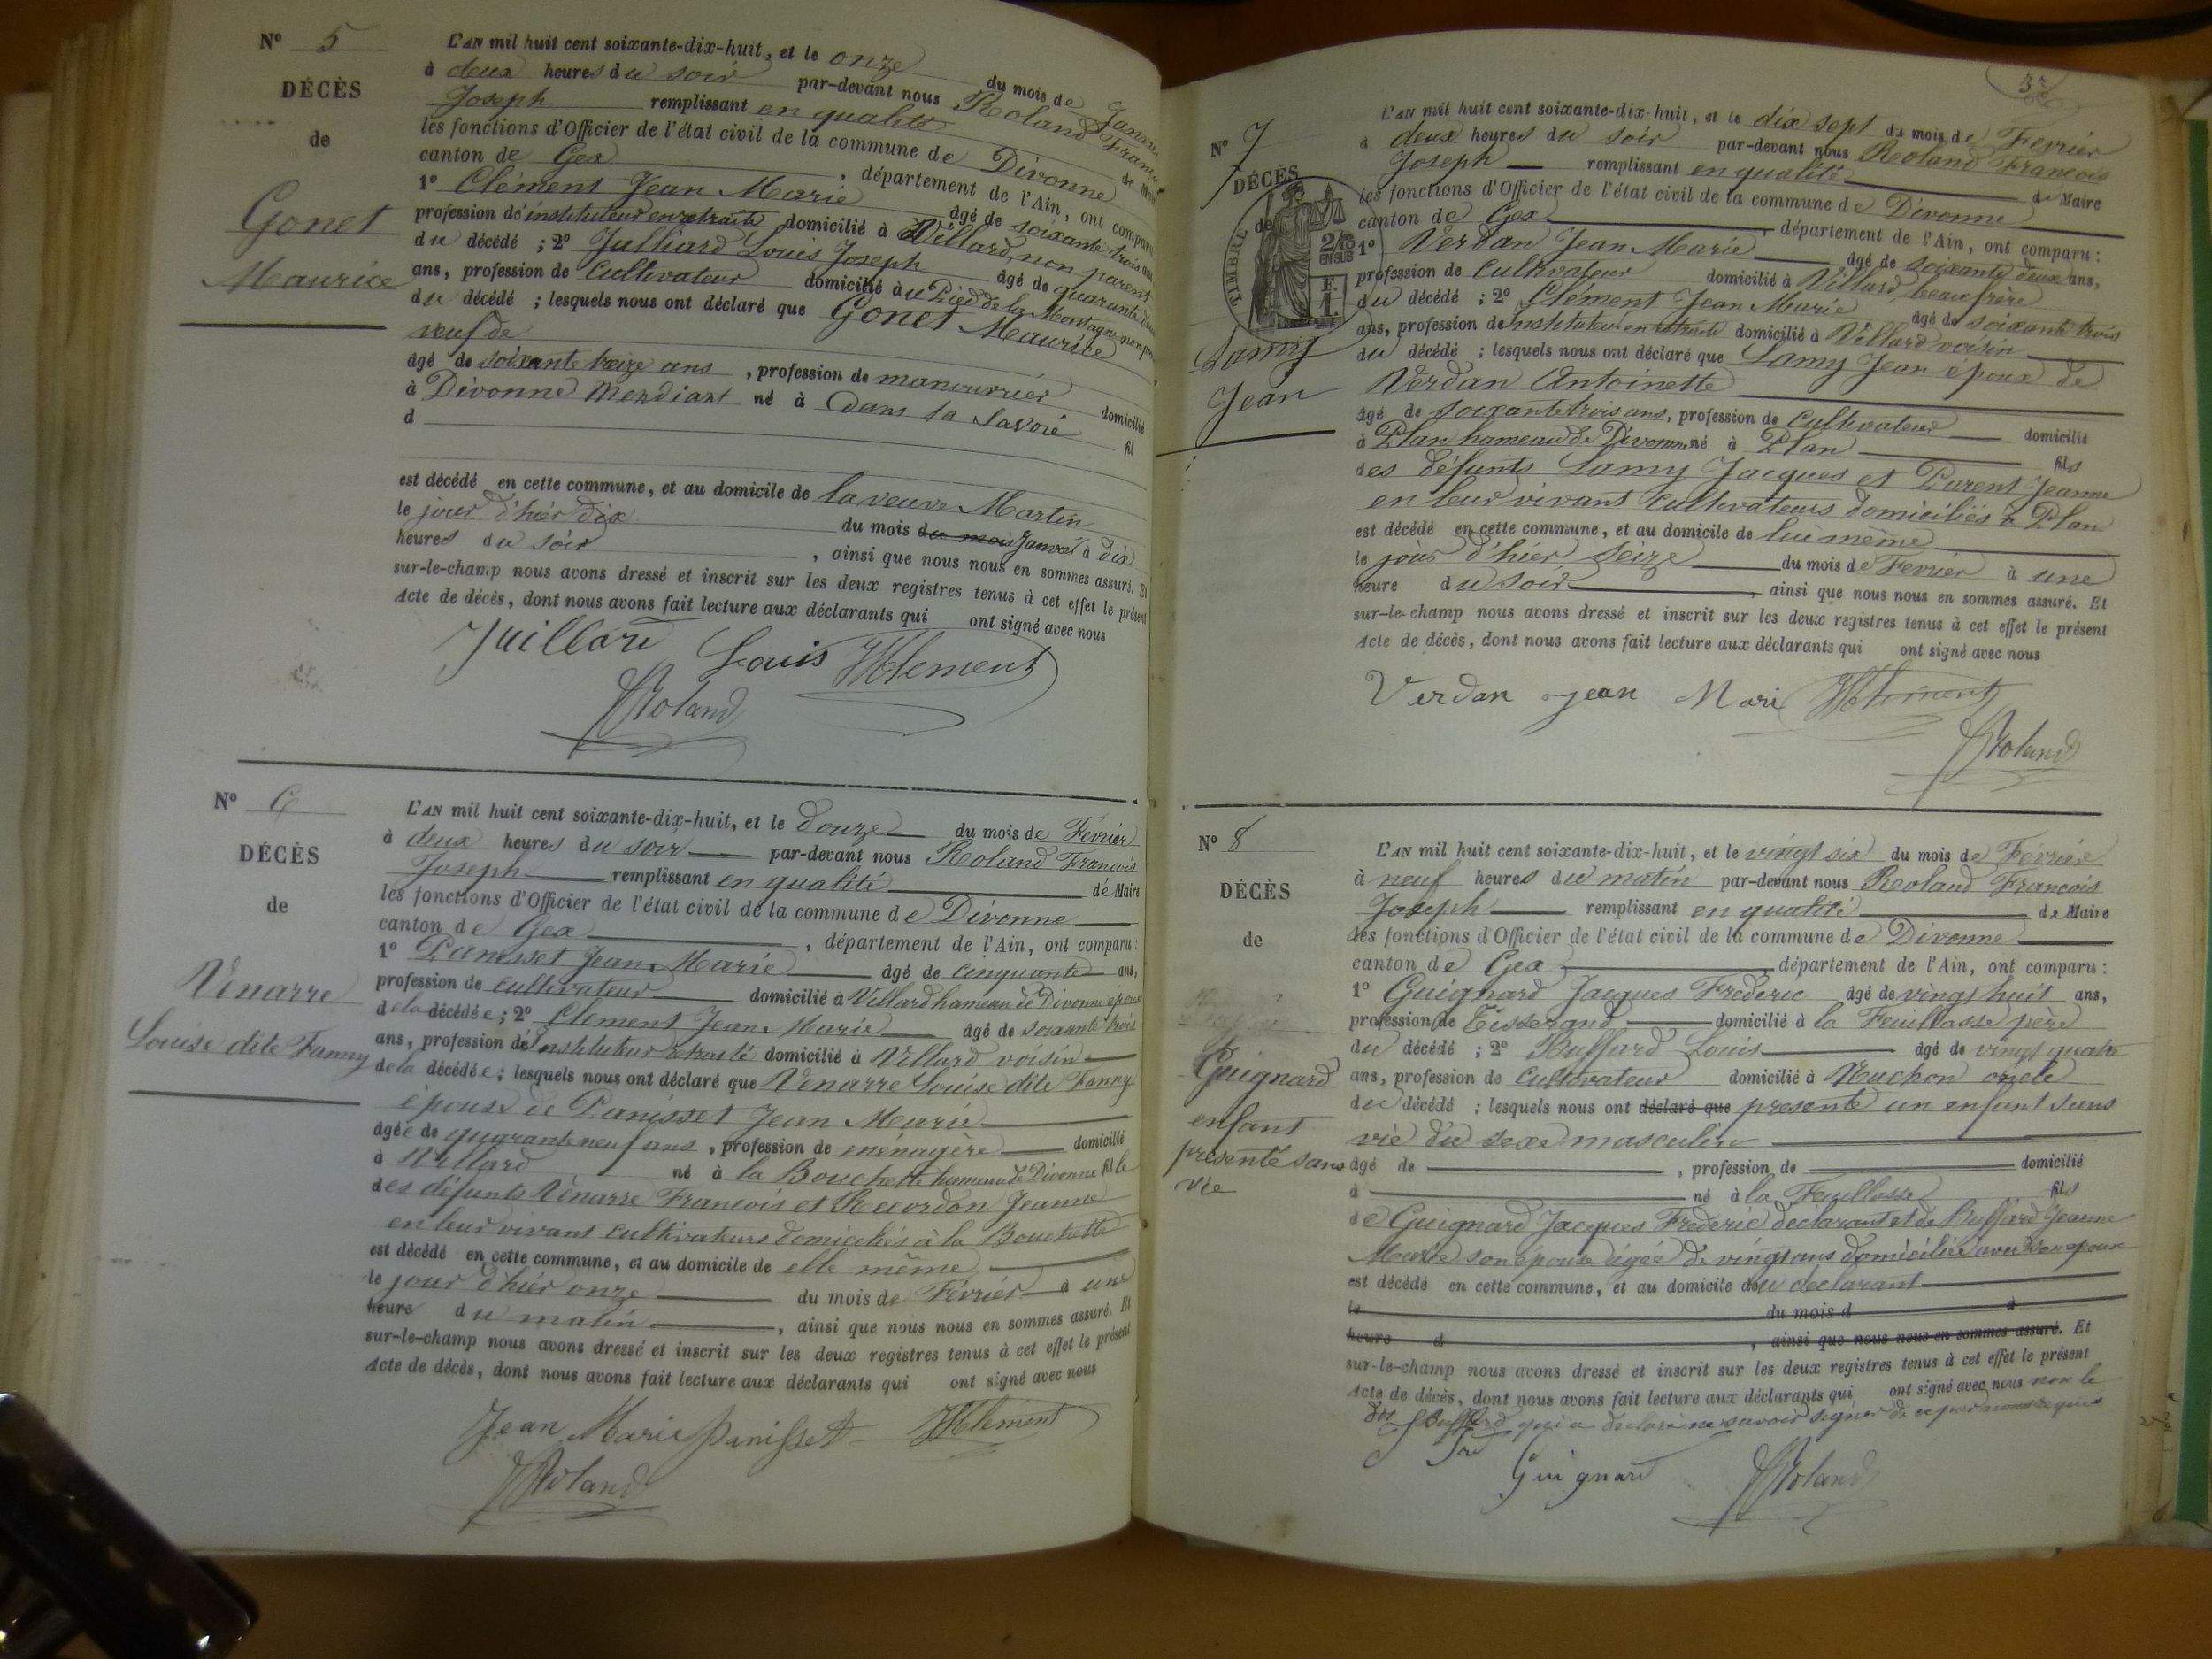 N° 5
DÉCÈS
de
Gonet
Maurice
L'AN mil huit cent soixante-dix-huit, et le onze du mois de Janvier
à deux heures du soir par-devant nous Roland François
Joseph remplissant en qualité de Maire
les fonctions d'Officier de l'état civil de la commune de Divonne
canton de Gex, département de l'Ain, ont comparu
1° Clément Jean Marie âgé de soixante trois ans
profession de instituteur en retraite domicilié à Villard non parent
du décédé ; 2° Julliard Louis Joseph âgé de quarante
ans, profession de Cultivateur domicilié au Pied de la Montagne non
du décédé ; lesquels nous ont déclaré que Gonet Maurice
veuf de
âgé de soixante treize ans, profession de manouvrier domicilié
à Divonne Mendiant né à dans la Savoie fil
d
est décédé en cette commune, et au domicile de la veuve Martin
le jour d'hier dix du mois du mois Janvier à dix
heures du soir, ainsi que nous nous en sommes assuré. Et
sur-le-champ nous avons dressé et inscrit sur les deux registres tenus à cet effet le présent
Acte de décès, dont nous avons fait lecture aux déclarants qui ont signé avec nous
Juillard Louis JMClement
Roland
N° 6
DÉCÈS
de
Venarre
Louise dite Fanny
L'AN mil huit cent soixante-dix-huit, et le douze du mois de Février
à deux heures du soir par-devant nous Roland François
Joseph remplissant en qualité de Maire
les fonctions d'Officier de l'état civil de la commune de Divonne
canton de Gex, département de l'Ain, ont comparu :
1° Panisset Jean Marie âgé de cinquante ans,
profession de cultivateur domicilié à Villard hameau de Divonne époux
de la décédée ; 2° Clément Jean Marie âgé de soixante trois
ans, profession d'Instituteur retraité domicilié à Villard voisin
de la décédée ; lesquels nous ont déclaré que Venarre Louise dite Fanny
épouse de Panisset Jean Marie
âgée de quarante neuf ans, profession de ménagère domicilié
à Villard né à la Bouchette hameau de Divonne fille
des défunts Venarre François et Recordon Jeanne
en leur vivant cultivateurs domiciliés à la Bouchette
est décédé en cette commune, et au domicile de elle même
le jour d'hier onze du mois de Février à une
heure du matin, ainsi que nous nous en sommes assuré. Et
sur-le-champ nous avons dressé et inscrit sur les deux registres tenus à cet effet le présent
Acte de décès, dont nous avons fait lecture aux déclarants qui ont signé avec nous
Jean Marie panisset JMClement
Roland
32
N° 7
DÉCÈS
de
TIMBRE
2/10
EN SUS
Lamy
Jean
L'AN mil huit cent soixante-dix-huit, et le dix sept du mois de Fevrier
à deux heures du soir par-devant nous Roland François
Joseph remplissant en qualité de Maire
les fonctions d'Officier de l'état civil de la commune de Divonne
canton de Gex, département de l'Ain, ont comparu :
1° Verdan Jean Marie âgé de soixante deux ans,
profession de Cultivateur domicilié à Villard beau frère
du décédé ; 2° Clément Jean Marie âgé de soixante trois
ans, profession de Instituteur en retraite domicilié à Villard voisin
du décédé ; lesquels nous ont déclaré que Lamy Jean époux de
Verdan Antoinette
âgé de soixante trois ans, profession de Cultivateur domicilié
à Plan hameau de Divonne né à Plan fils
des défunts Lamy Jacques et Parent Jeanne
en leur vivant cultivateurs domiciliés à Plan
est décédé en cette commune, et au domicile de lui même
le jour d'hier seize du mois de Fevrier à une
heure du soir, ainsi que nous nous en sommes assuré. Et
sur-le-champ nous avons dressé et inscrit sur les deux registres tenus à cet effet le présent
Acte de décès, dont nous avons fait lecture aux déclarants qui ont signé avec nous
Verdan jean Mari JMClement
Roland
N° 8
DÉCÈS
de
Guignard
enfant
présenté sans
vie
L'AN mil huit cent soixante-dix-huit, et le vingt six du mois de Février
à neuf heures du matin par-devant nous Roland François
Joseph remplissant en qualité de Maire
les fonctions d'Officier de l'état civil de la commune de Divonne
canton de Gex département de l'Ain, ont comparu :
1° Guignard Jacques Frederic âgé de vingt huit ans,
profession de Tisserand domicilié à la Feuillasse père
du décédé ; 2° Buffard Louis âgé de vingt quatre
ans, profession de Cultivateur domicilié à Ruchon oncle
du décédé ; lesquels nous ont déclaré que presenté un enfant sans
vie du sexe masculin
âgé de , profession de domicilié
à né à la Feuillasse fils
de Guignard Jacques Frederic déclarant et de Buffard Jeanne
Marie son épouse âgée de vingt ans domiciliée avec son époux
est décédé en cette commune, et au domicile du déclarant
le du mois d à
heure d , ainsi que nous nous en sommes assuré. Et
sur-le-champ nous avons dressé et inscrit sur les deux registres tenus à cet effet le présent
Acte de décès, dont nous avons fait lecture aux déclarants qui ont signé avec nous non le
dit Buffard qui a declaré ne savoir signer de ce par nous requis
Guignard Roland